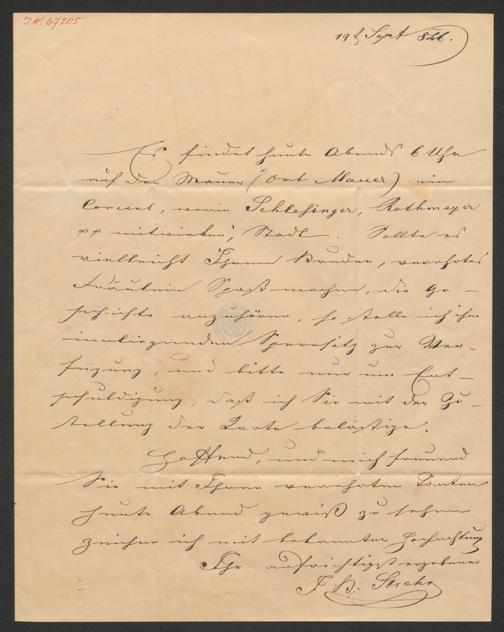 I.N. 67205
19t Sept 866.
Es findet heute Abends 6 Uhr
auf der Mauer (Ort Mauer) ein
Concert, worin Schlesinger, Rothmayer
pp mitwirken, Statt. Sollte es
vielleicht Ihrem Bruder, verehrtes
Fräulein Spaß machen, die Ge-
schichte anzuhören, so stelle ich ihm
inneliegenden Sperrsitz zur Ver-
fügung, und bitte nur um Ent-
schuldigung, daß ich Sie mit der Zu-
stellung der Karte belästige.
Hoffend, und mich freuend
Sie mit Ihrer verehrten Tanten
heute Abend gewiß zu sehen
zeichne ich mit bekannter Hochachtung
Ihr aufrichtigst ergebener